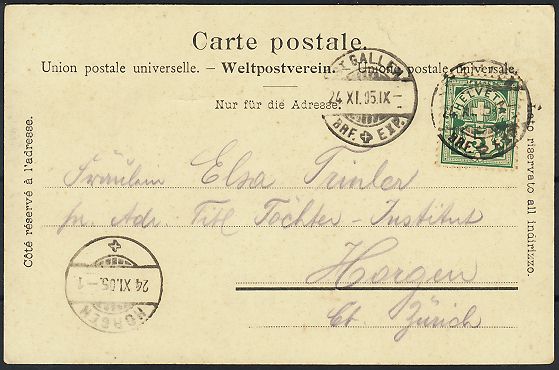 Carte postale.
Union postale universelle. – Weltpostverein. Unione postale universale.
Nur für die Adresse.
ST GALLEN
24.XI.05.IX–
BRF. EXP.
HELVETIA
5
BRF.
Côté réservé à l'adresse.
Lato riservato all indirizzo.
Fräulein Elsa
pr. Adr. Titl Töchter-Institut
Horgen
Ct. Zürich
24.XI.05.–1
HORGEN